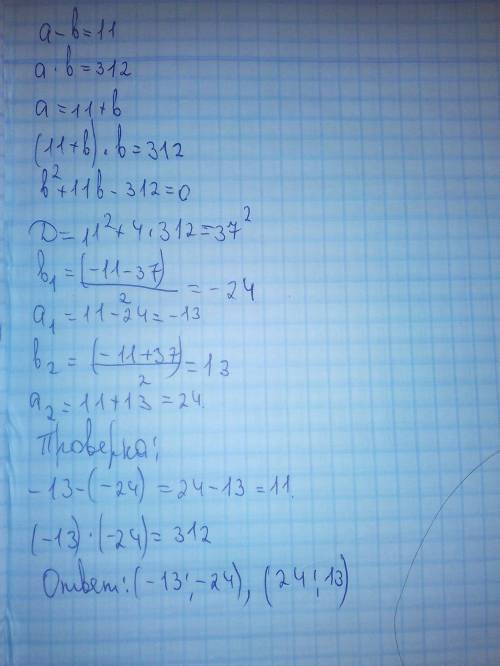 a-b=11
a·b=312
a=11+b
(11+b)·b=312
b²+11b-312=0
D=11²+4·312=37²
b₁=(-11-37)/2=-24
a₁=11-24=-13
b₂=(-11+37)/2=13
a₂=11+13=24.
Проверка:
-13-(-24)=24-13=11.
(-13)·(-24)=312
Ответ:(-13;-24),(24;13)